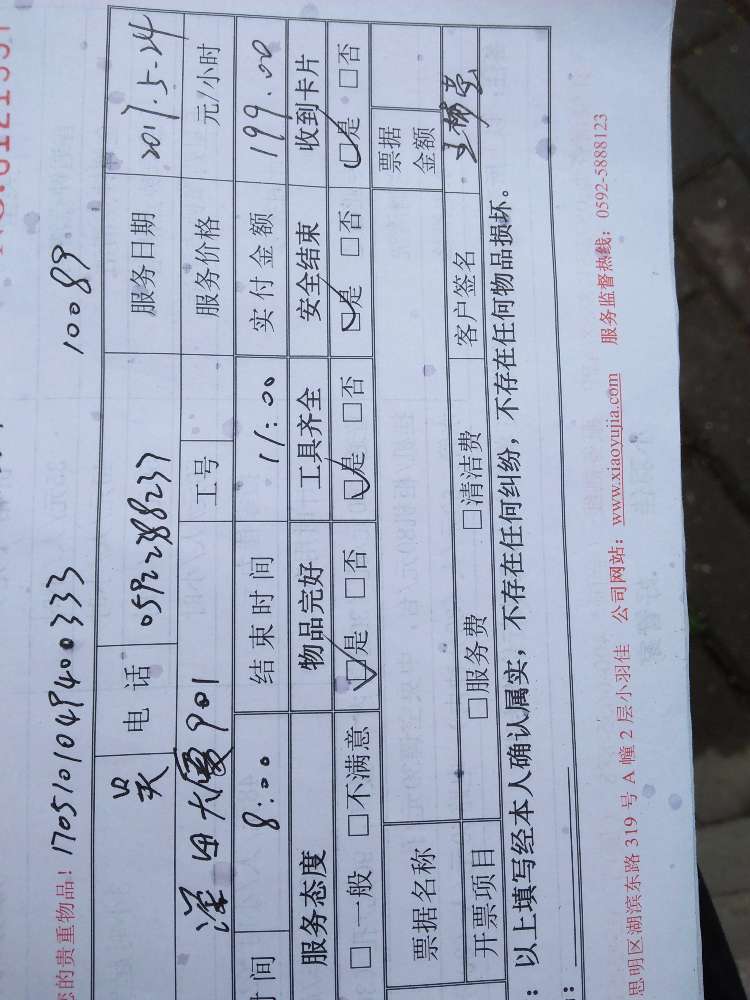 您的贵重物品！1705101049400333 10089
吴 电话 0592-2388237 服务日期 2017.5-24
大厦901 工号 服务价格 元/小时
时间 8:00 结束时间 11:00 实付金额 199.00
服务态度 物品完好 工具齐全 安全结束 收到卡片
□一般 □不满意 □是 □否 □是 □否 □是 □否 □是 □否
票据名称 票据金额
开票项目 □服务费 □清洁费 客户签名
：以上填写经本人确认属实，不存在任何纠纷，不存在任何物品损坏。
：
思明区湖滨东路 319 号 A 幢 2 层小羽佳 公司网站：www.xiaoyujia.com 服务监督热线：0592-5888123